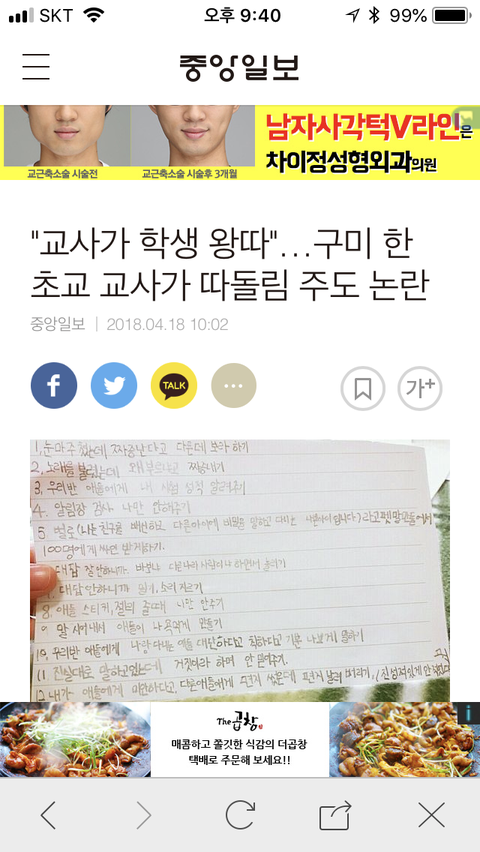 SKT
오후 9:40
99%
중앙일보
교근축소술 시술전
교근축소술 시술후 3개월
남자사각턱V라인은
차이정성형외과의원
"교사가 학생 왕따"…구미 한
초교 교사가 따돌림 주도 논란
중앙일보 | 2018.04.18 10:02
TALK
가+
1, 눈마주쳤는데 짜증난다고 다른데 보라 하기
2, 노래를 불렀는데 왜부르냐고 짜증내기
3, 우리반 애들에게 내 시험 성적 알려주기
4, 알림장 검사 나만 안해주기
5 벌로(나는 친구를 배반하고 다른아이에 비밀을 말하고 다니는 나쁜아이입니다) 라고
100명에게 싸인 받게하기.
대답 잘 안하니까 바보냐
대답안하니까 소리 지르기
8, 애들 스티커, 젤리 줄때 나만 안주기
9 애들이 나 욕하게 만들기
10, 우리반 애들에게 나랑 다니는 애들 대단하다고 착하다고 기분 나쁘게 말하기
11 진실대로 말하고있는데 거짓이라 하며 안 믿어주기.
12, 내가 애들에게 미안하다고, 다른애들에게 편지 썼는데 편지
The곱창
매콤하고 쫄깃한 식감의 더곱창
택배로 주문해 보세요!!